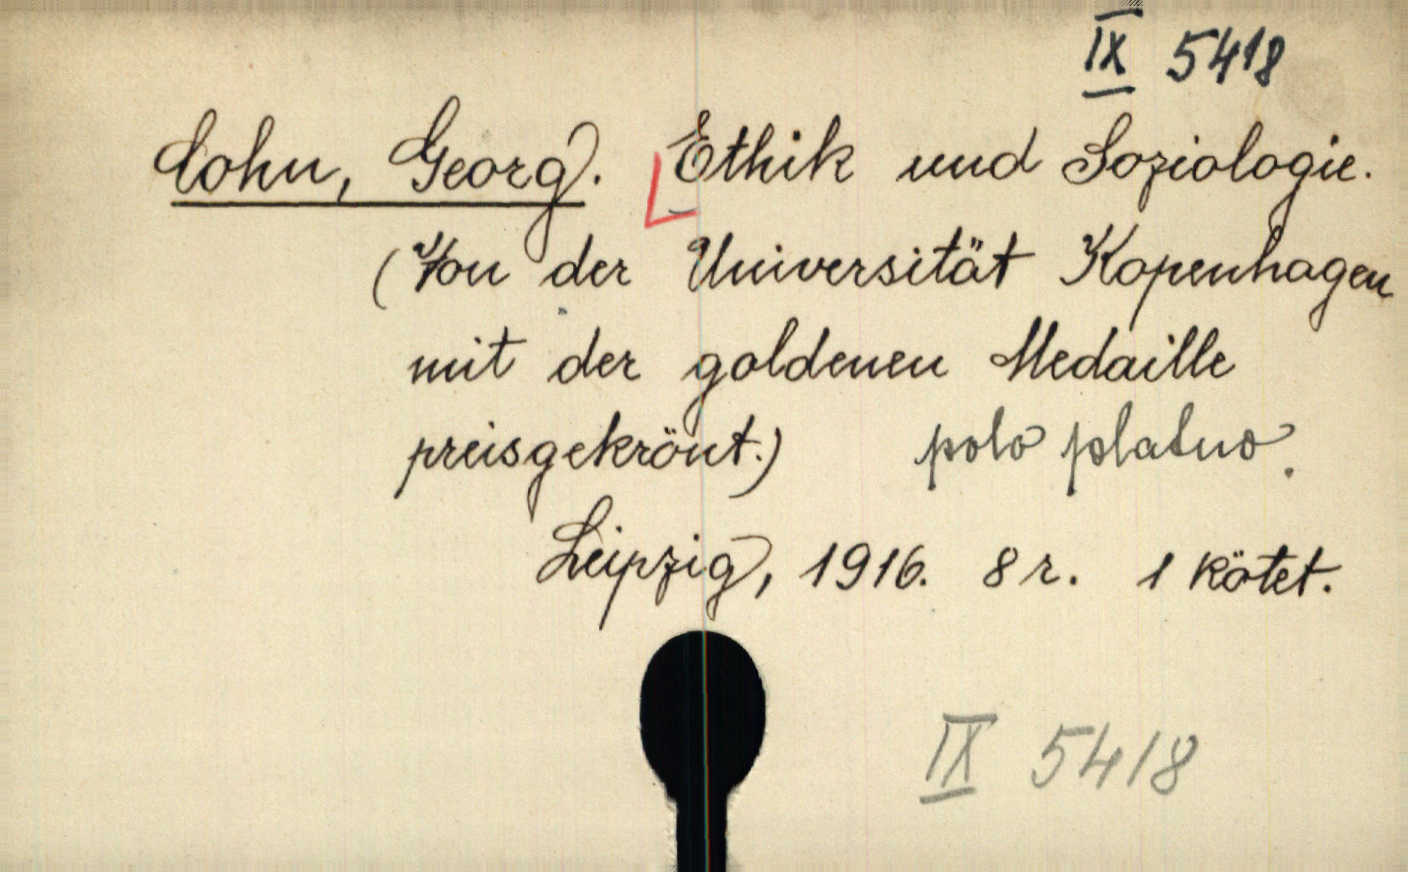 IX 5418
Cohn, Georg. Ethik und Soziologie.
(Von der Universität Kopenhagen
mit der goldenen Medaille
preisgekrönt.) polo platno.
Leipzig, 1916. 8 r. 1 kötet.
IX 5418